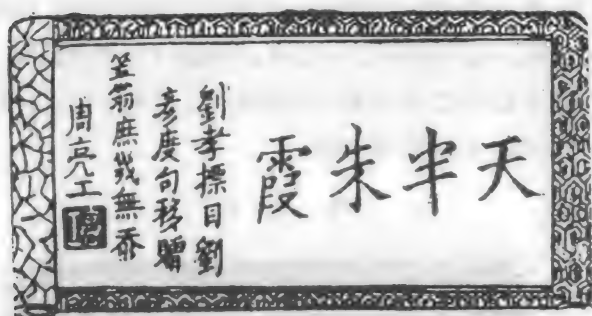 天半朱霞
劉孝標目劉
彥度句移贈
笠翁庶幾無忝
周亮工